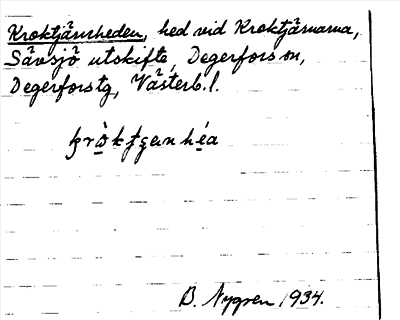 Kroktjärnheden, hed vid Kroktjärnarna,
Sävsjö utskifte, Degerfors sn,
Degerforstg, Västerb. l.
B. Nygren 1934.